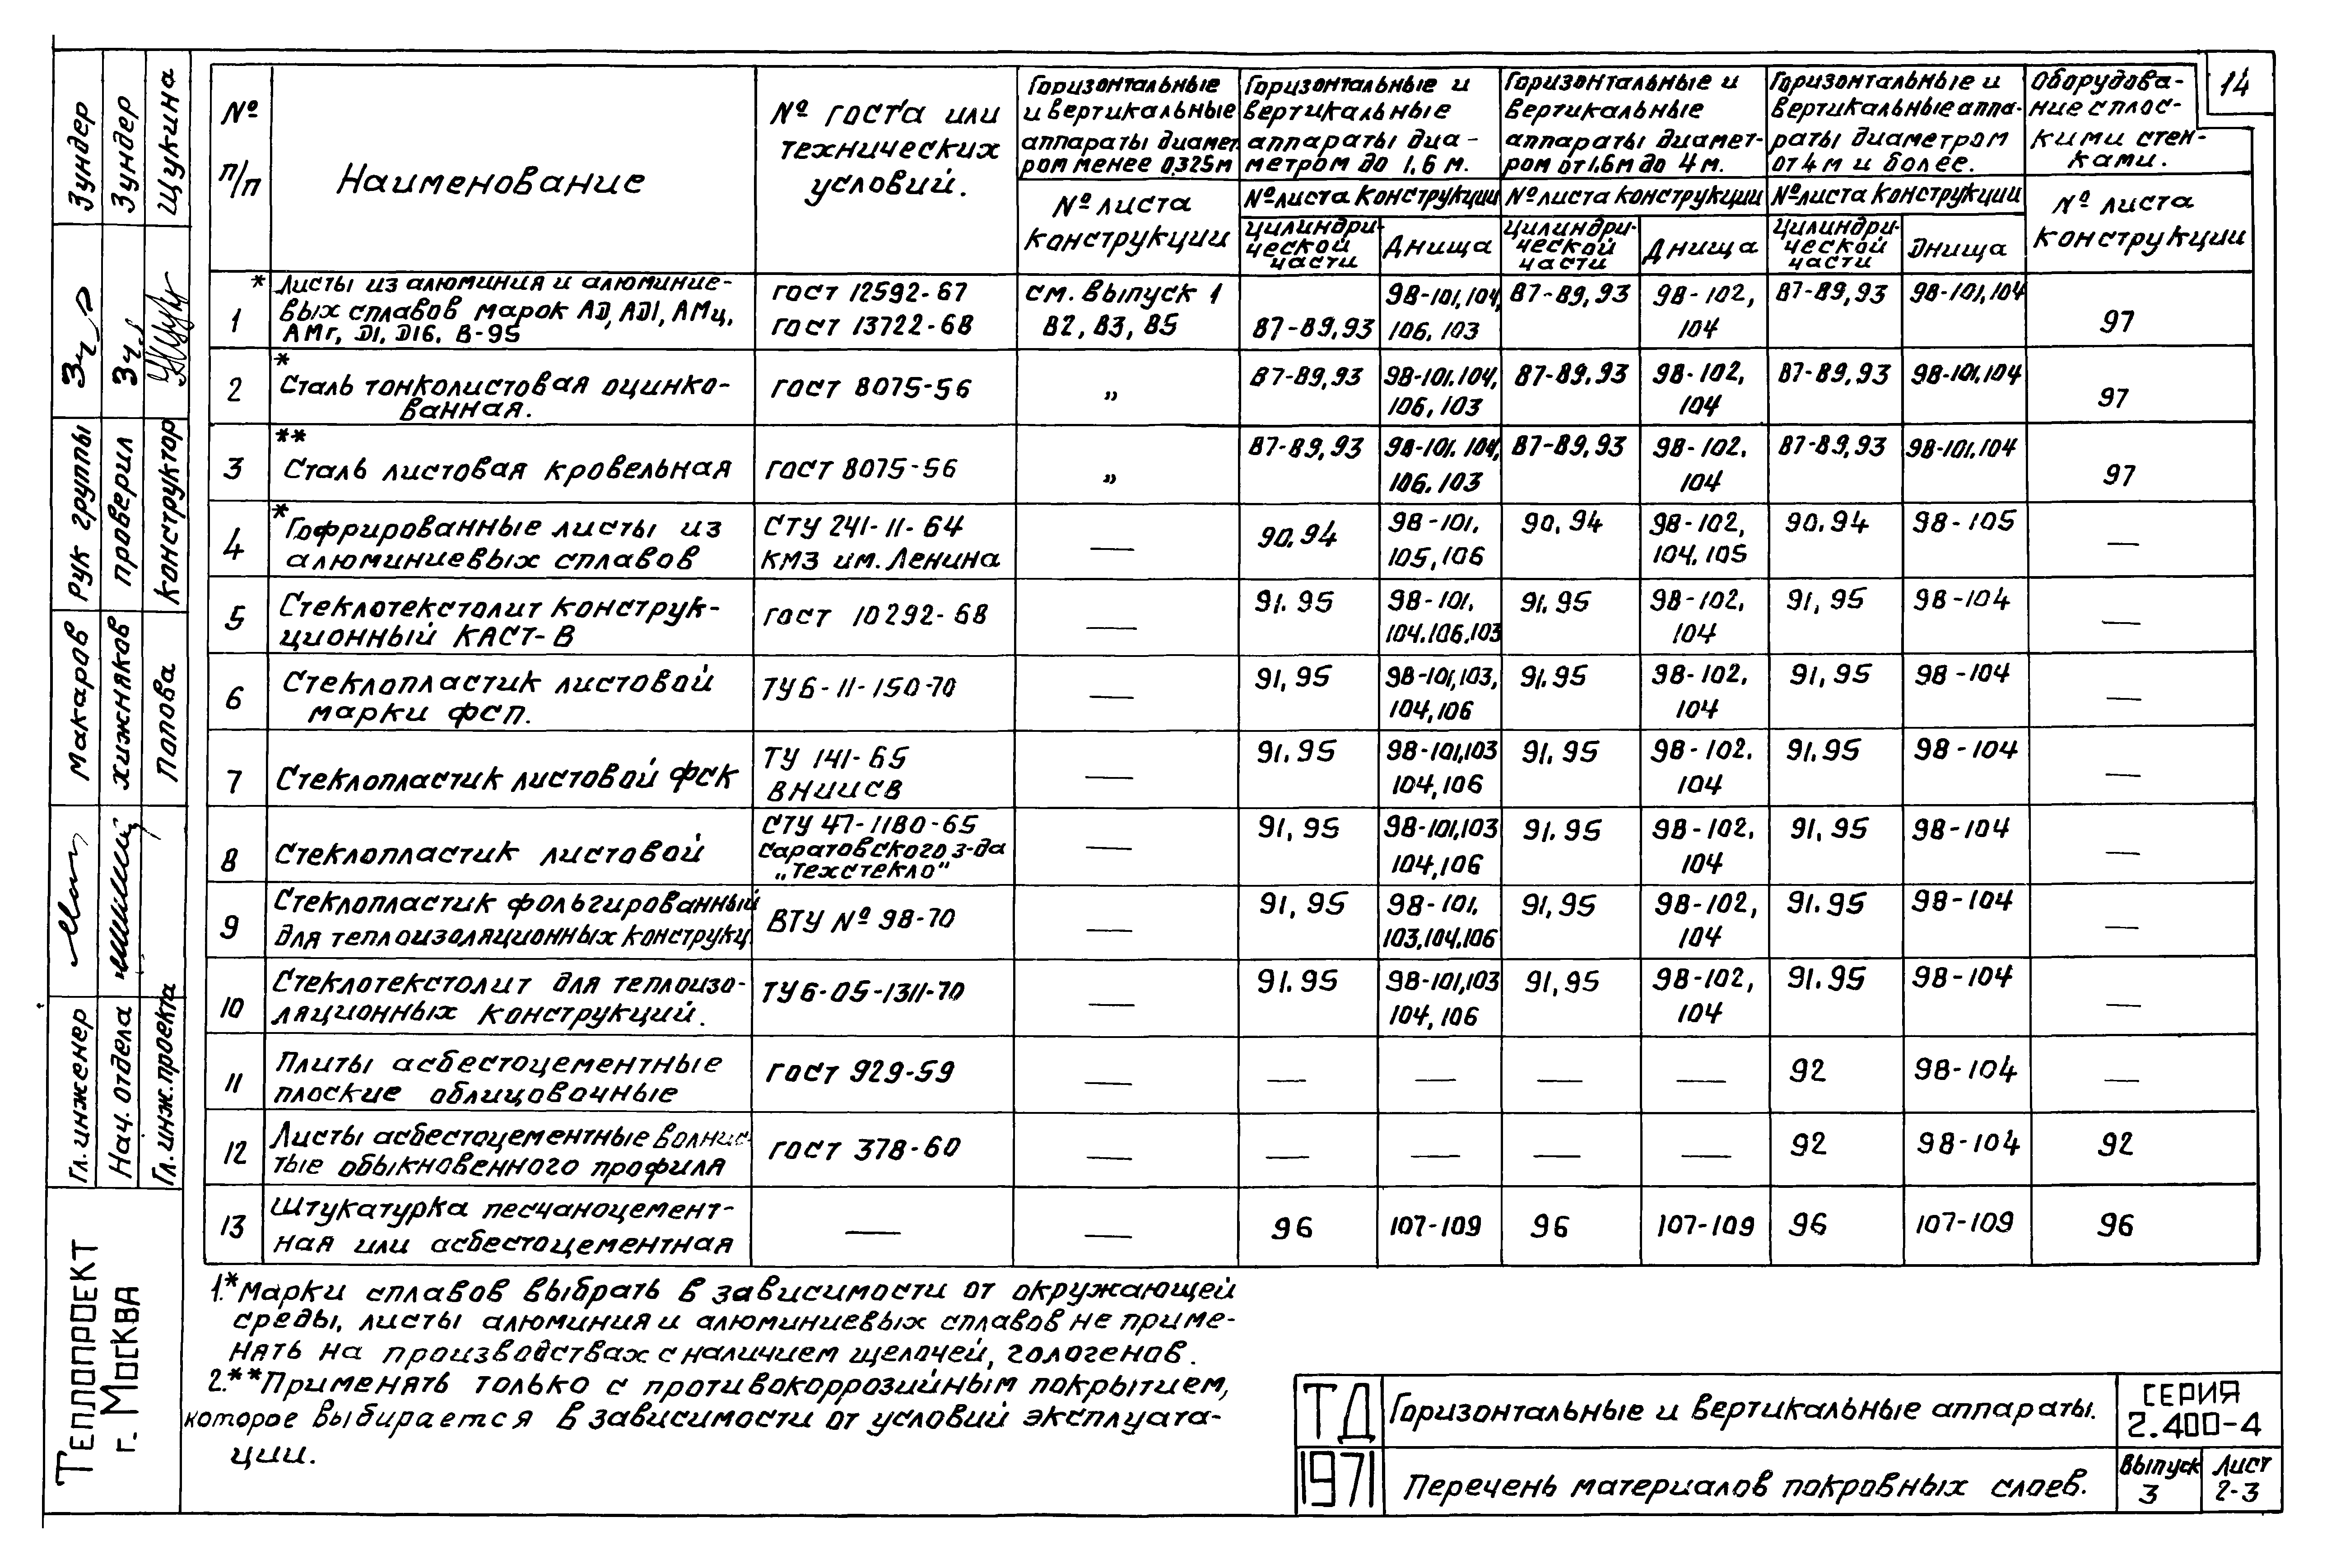 14
№
п/п
Наименование
№ госта или
технических
условий.
Горизонтальные
и вертикальные
аппараты диамет.
ром менее 0.325м
№ листа
конструкции
Горизонтальные и
вертикальные
аппараты диа-
метром до 1,6 м.
№ листа конструкции
цилиндри-
ческой
части
Днища
Горизонтальные и
вертикальные
аппараты диамет-
ром от 1.6м до 4 м.
№ листа конструкции
цилиндри-
ческой
части
Днища
Горизонтальные и
вертикальные аппа-
раты диаметром
от 4 м и более.
№ листа конструкции
цилиндри-
ческой
части
Днища
Оборудова-
ние с плос-
кими стен-
ками.
№ листа
конструкции
1
* Листы из алюминия и алюминие-
вых сплавов марок АД, АД1, АМц,
АМг, Д1, Д16, В-95
ГОСТ 12592-67
ГОСТ 13722-68
см. Выпуск 1
82, 83, 85
87-89,93
98-101,104,
106, 103
87-89,93
98-102,
104
87-89,93
98-101,104
97
2
*
Сталь тонколистовая оцинко-
ванная.
ГОСТ 8075-56
„
87-89,93
98-101.104,
106, 103
87-89.93
98-102,
104
87-89,93
98-101,104
97
3
**
Сталь листовая кровельная
ГОСТ 8075-56
„
87-89,93
98-101. 104,
106. 103
87-89,93
98-102.
104
87-89,93
98-101,104
97
4
* Гофрированные листы из
алюминиевых сплавов
СТУ 241-11-64
КМЗ им. Ленина
—
90.94
98-101.
105, 106
90,94
98-102,
104.105
90.94
98-105
—
5
Стеклотекстолит конструк-
ционный КАСТ-В
ГОСТ 10292-68
—
91.95
98-101.
104.106.103
91.95
98-102,
104
91, 95
98-104
—
6
Стеклопластик листовой
марки ФСП.
ТУ6-11-150-70
—
91,95
98-101,103,
104,106
91.95
98-102.
104
91,95
98-104
—
7
Стеклопластик листовой ФСК
ТУ 141-65
ВНИИСВ
—
91.95
98-101,103
104,106
91,95
98-102.
104
91.95
98-104
—
8
Стеклопластик листовой
СТУ 47-1180-65
Саратовского з-да
„Техстекло"
—
91,95
98-101,103
104,106
91.95
98-102,
104
91,95
98-104
—
9
Стеклопластик фольгированный
для теплоизоляционных конструкц.
ВТУ № 98-70
—
91,95
98-101.
103,104.106
91,95
98-102,
104
91.95
98-104
—
10
Стеклотекстолит для теплоизо-
ляционных конструкций.
ТУ6-05-1311-70
—
91.95
98-101,103
104,106
91,95
98-102,
104
91.95
98-104
—
11
Плиты асбестоцементные
плоские облицовочные
ГОСТ 929-59
—
—
—
—
—
92
98-104
—
12
Листы асбестоцементные волнис-
тые обыкновенного профиля
ГОСТ 378-60
—
—
—
—
—
92
98-104
92
13
Штукатурка песчаноцемент-
ная или асбестоцементная
—
—
96
107-109
96
107-109
96
107-109
96
1.* Марки сплавов выбрать в зависимости от окружающей
среды, листы алюминия и алюминиевых сплавов не приме-
нять на производствах с наличием щелочей, гологенов.
2.** Применять только с противокоррозийным покрытием,
которое выбирается в зависимости от условий эксплуата-
ции.
ТД
1971
Горизонтальные и вертикальные аппараты.
Перечень материалов покровных слоев.
СЕРИЯ
2.400-4
Выпуск
3
Лист
2-3
Теплопроект
г. Москва
Гл. инженер
Нач. отдела
Гл. инж. проекта
Макаров
Хижняков
Попова
Рук группы
проверил
Конструктор
Зундер
Зундер
Щукина